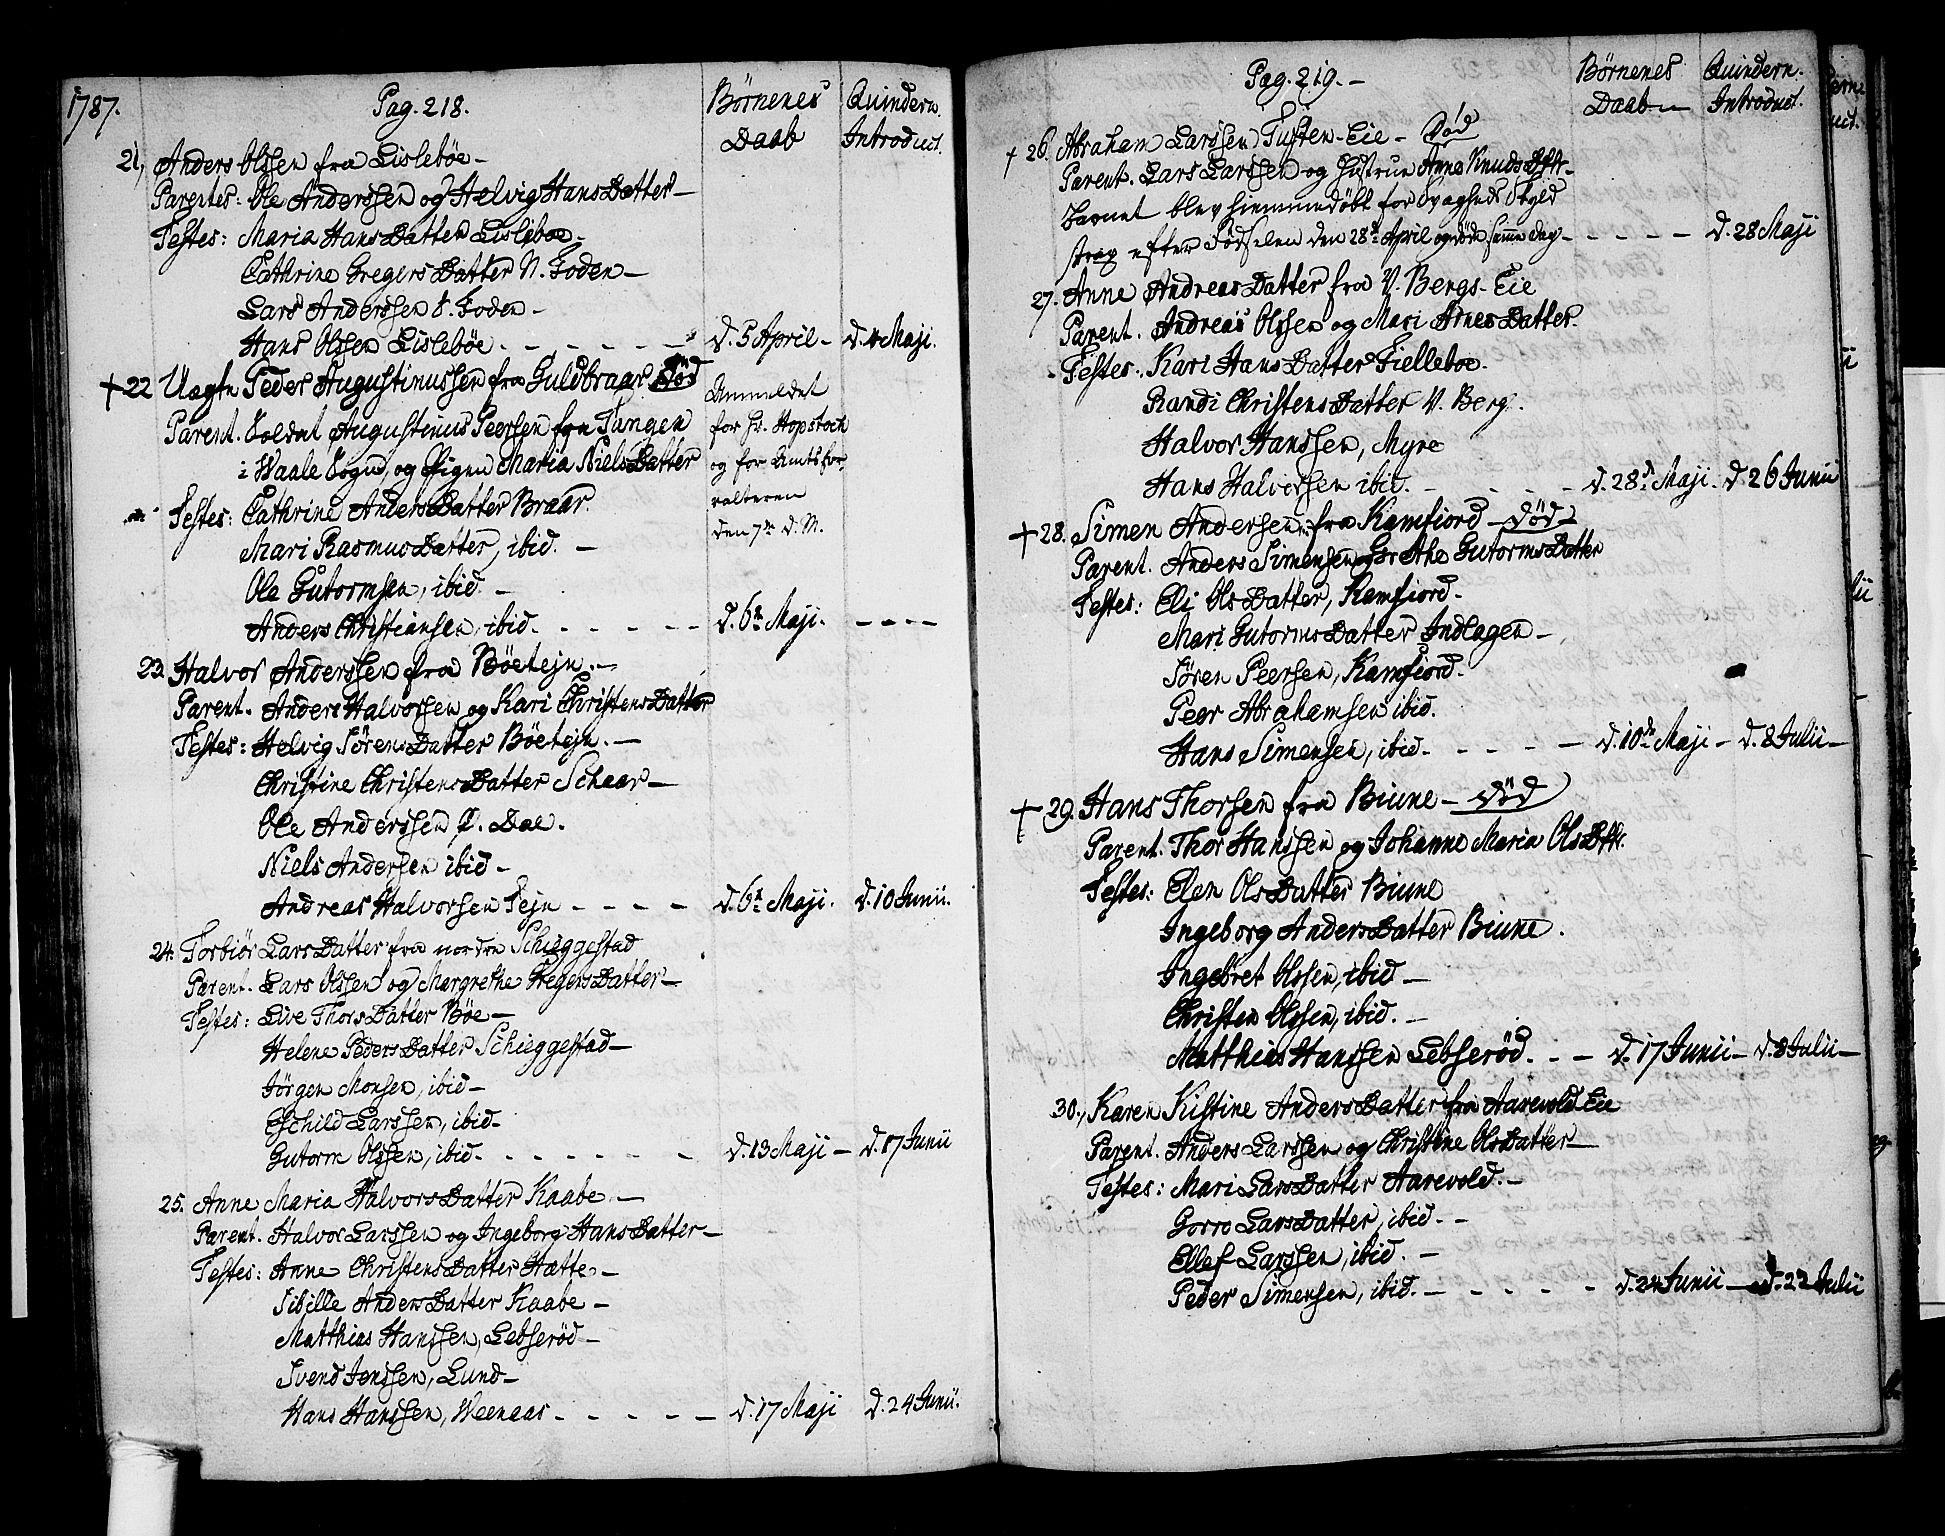 1787.
Pag. 218.
Börnenes Daab
Quindern. Introduct.
21, Anders Olssen fra Lislebøe -
Parentes: Ole Anderssen og Helvig HansDatter -
Testes: Maria HansDatter Lislebøe -
Cathrine GregersDatter N. Foden -
Lars Anderssen S. Foden -
Hans Olssen Lislebøe - - - - - - d. 5 April - d. 4 Maji.
+ 22 Uægte Peder Augustinussen fra Guldbraar Död
Parent. Soldat Augustinus Peersen fra Tangen
i Waale Sogn, og Pigen Maria NielsDatter
Testes: Cathrine AndersDatter Braar.
Mari RasmusDatter, ibid. -
Ole Gutormsen, ibid. -
Anders Christiansen, ibid. - - - - - d. 6te Maji. - - - -
Anmeldet
for Hr. Hopstock
og for Amtsfor,,
valteren
den 7de d. M.
23. Halvor Anderssen fra Böetejn. -
Parent. Anders Halvorsen og Kari ChristensDatter
Testes: Helvig SörensDatter Böetejn. -
Christine ChristensDatter Schaar -
Ole Anderssen Ø. Dae.
Niels Andersen ibid -
Andreas Halvorsen Tejn - - - - d. 6te Maji. d. 10 Junii.
24. Torbiör LarsDatter fra nordre Schieggestad
Parent. Lars Olssen og Margrethe GregersDatter -
Testes: Live ThorsDatter Böe -
Helene PedersDatter Schieggestad -
Jörgen Monsen, ibid -
Eschild Larssen, ibid -
Gutorm Olssen, ibid. - - - - - - d. 13 Maji - d. 17 Junii
25. Anne Maria HalvorsDatter Kaabe. -
Parent. Halvor Larssen og Ingeborg HansDatter -
Testes: Anne ChristensDatter Hatte. -
Sibille AndersDatter Kaabe -
Matthias Hanssen, Lebseröd -
Svend Jenssen, Lund -
Hans Hanssen, Weenaas - - - - - d. 17 Maji d. 24 Junii.
Pag. 219. -
Börnenes Daab
Quindern. Introduct.
+ 26. Abraham Larssen Tuften-Eie - Död
Parent. Lars Larssen og Hustrue Anne KnudsDttr -
Barnet blev hiemmedöbt for Svagheds Skyld
strax efter Födselen den 28de April og döde samme dag - - - - - d. 28 Maji
27. Anne AndreasDatter fra V. Bergs-Eie
Parent. Andreas Olssen og Mari ArnesDatter.
Testes: Kari HansDatter Fielleboe -
Randi ChristensDatter V. Berg.
Halvor Hanssen, Myre
Hans Halvorsen ibid. - - - - d. 28de Maji. d. 26 Junii
+ 28. Simen Andersen fra Kamfiord - död -
Parent. Anders Simensen, Grethe GutormsDatter
Testes: Eli OlsDatter, Kamfiord.
Mari GutormsDatter Indlagen -
Sören Peersen, Kamfiord.
Peer Abrahamsen ibid.
Hans Simensen, ibid. - - - - d. 10de Maji - d. 8 Julii -
+ 29. Hans Thorsen fra Biune - död
Parent. Thor Hanssen og Johanne Maria OlsDttr.
Testes: Elen OlsDatter Biune
Ingeborg AndersDatter Biune.
Ingebret Olssen, ibid -
Christen Olssen, ibid. -
Matthias Hanssen Lebseröd. - - d. 17 Junii - d. 8 Julii -
30., Karen Kistine AndersDatter fra Aarevold Eie
Parent. Anders Larssen og Christine OlsDatter -
Testes: Mari LarsDatter Aarevold. -
Gorro LarsDatter, ibid. -
Ellef Larssen, ibid. -
Peder Simensen, ibid. - - - - - d. 24 Junii - d. 22 Julii